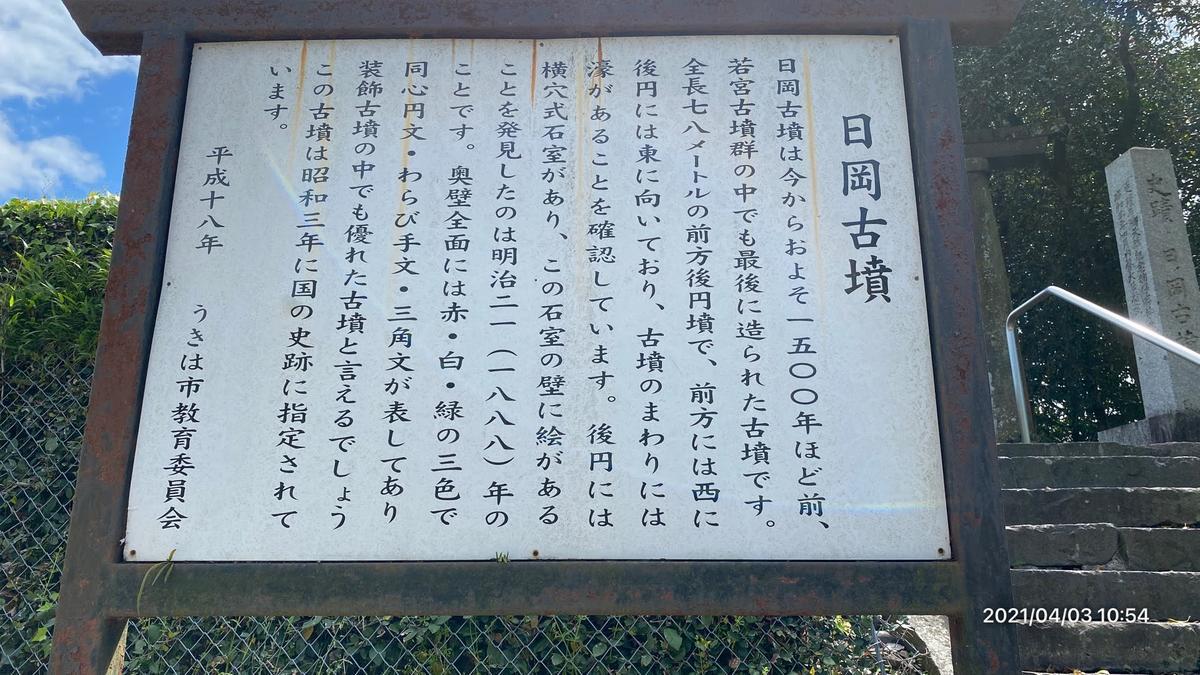 日岡古墳
日岡古墳は今からおよそ一五〇〇年ほど前、
若宮古墳群の中でも最後に造られた古墳です。
全長七八メートルの前方後円墳で、前方には西に
後円には東に向いており、古墳のまわりには
濠があることを確認しています。後円には
横穴式石室があり、この石室の壁に絵がある
ことを発見したのは明治二一(一八八八)年の
ことです。奥壁全面には赤・白・緑の三色で
同心円文・わらび手文・三角文が表してあり
装飾古墳の中でも優れた古墳と言えるでしょう
この古墳は昭和三年に国の史跡に指定されて
います。
平成十八年
うきは市教育委員会
史蹟 日岡古墳
2021/04/03 10:54